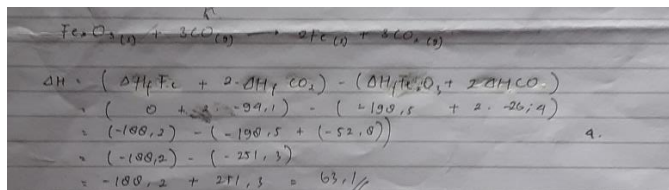 Fe₂O₃(s) + 3CO(g) → 2Fe(s) + 3CO₂(g)
ΔH = (ΔHf Fe + 2·ΔHf CO₂) - (ΔHf Fe₂O₃ + 2ΔHCO)
= (0 + 2· -94,1) - (-198,5 + 2· -26,4)
= (-188,2) - (-198,5 + (-52,8))
a.
= (-188,2) - (-251,3)
= -188,2 + 251,3 = 63,1//